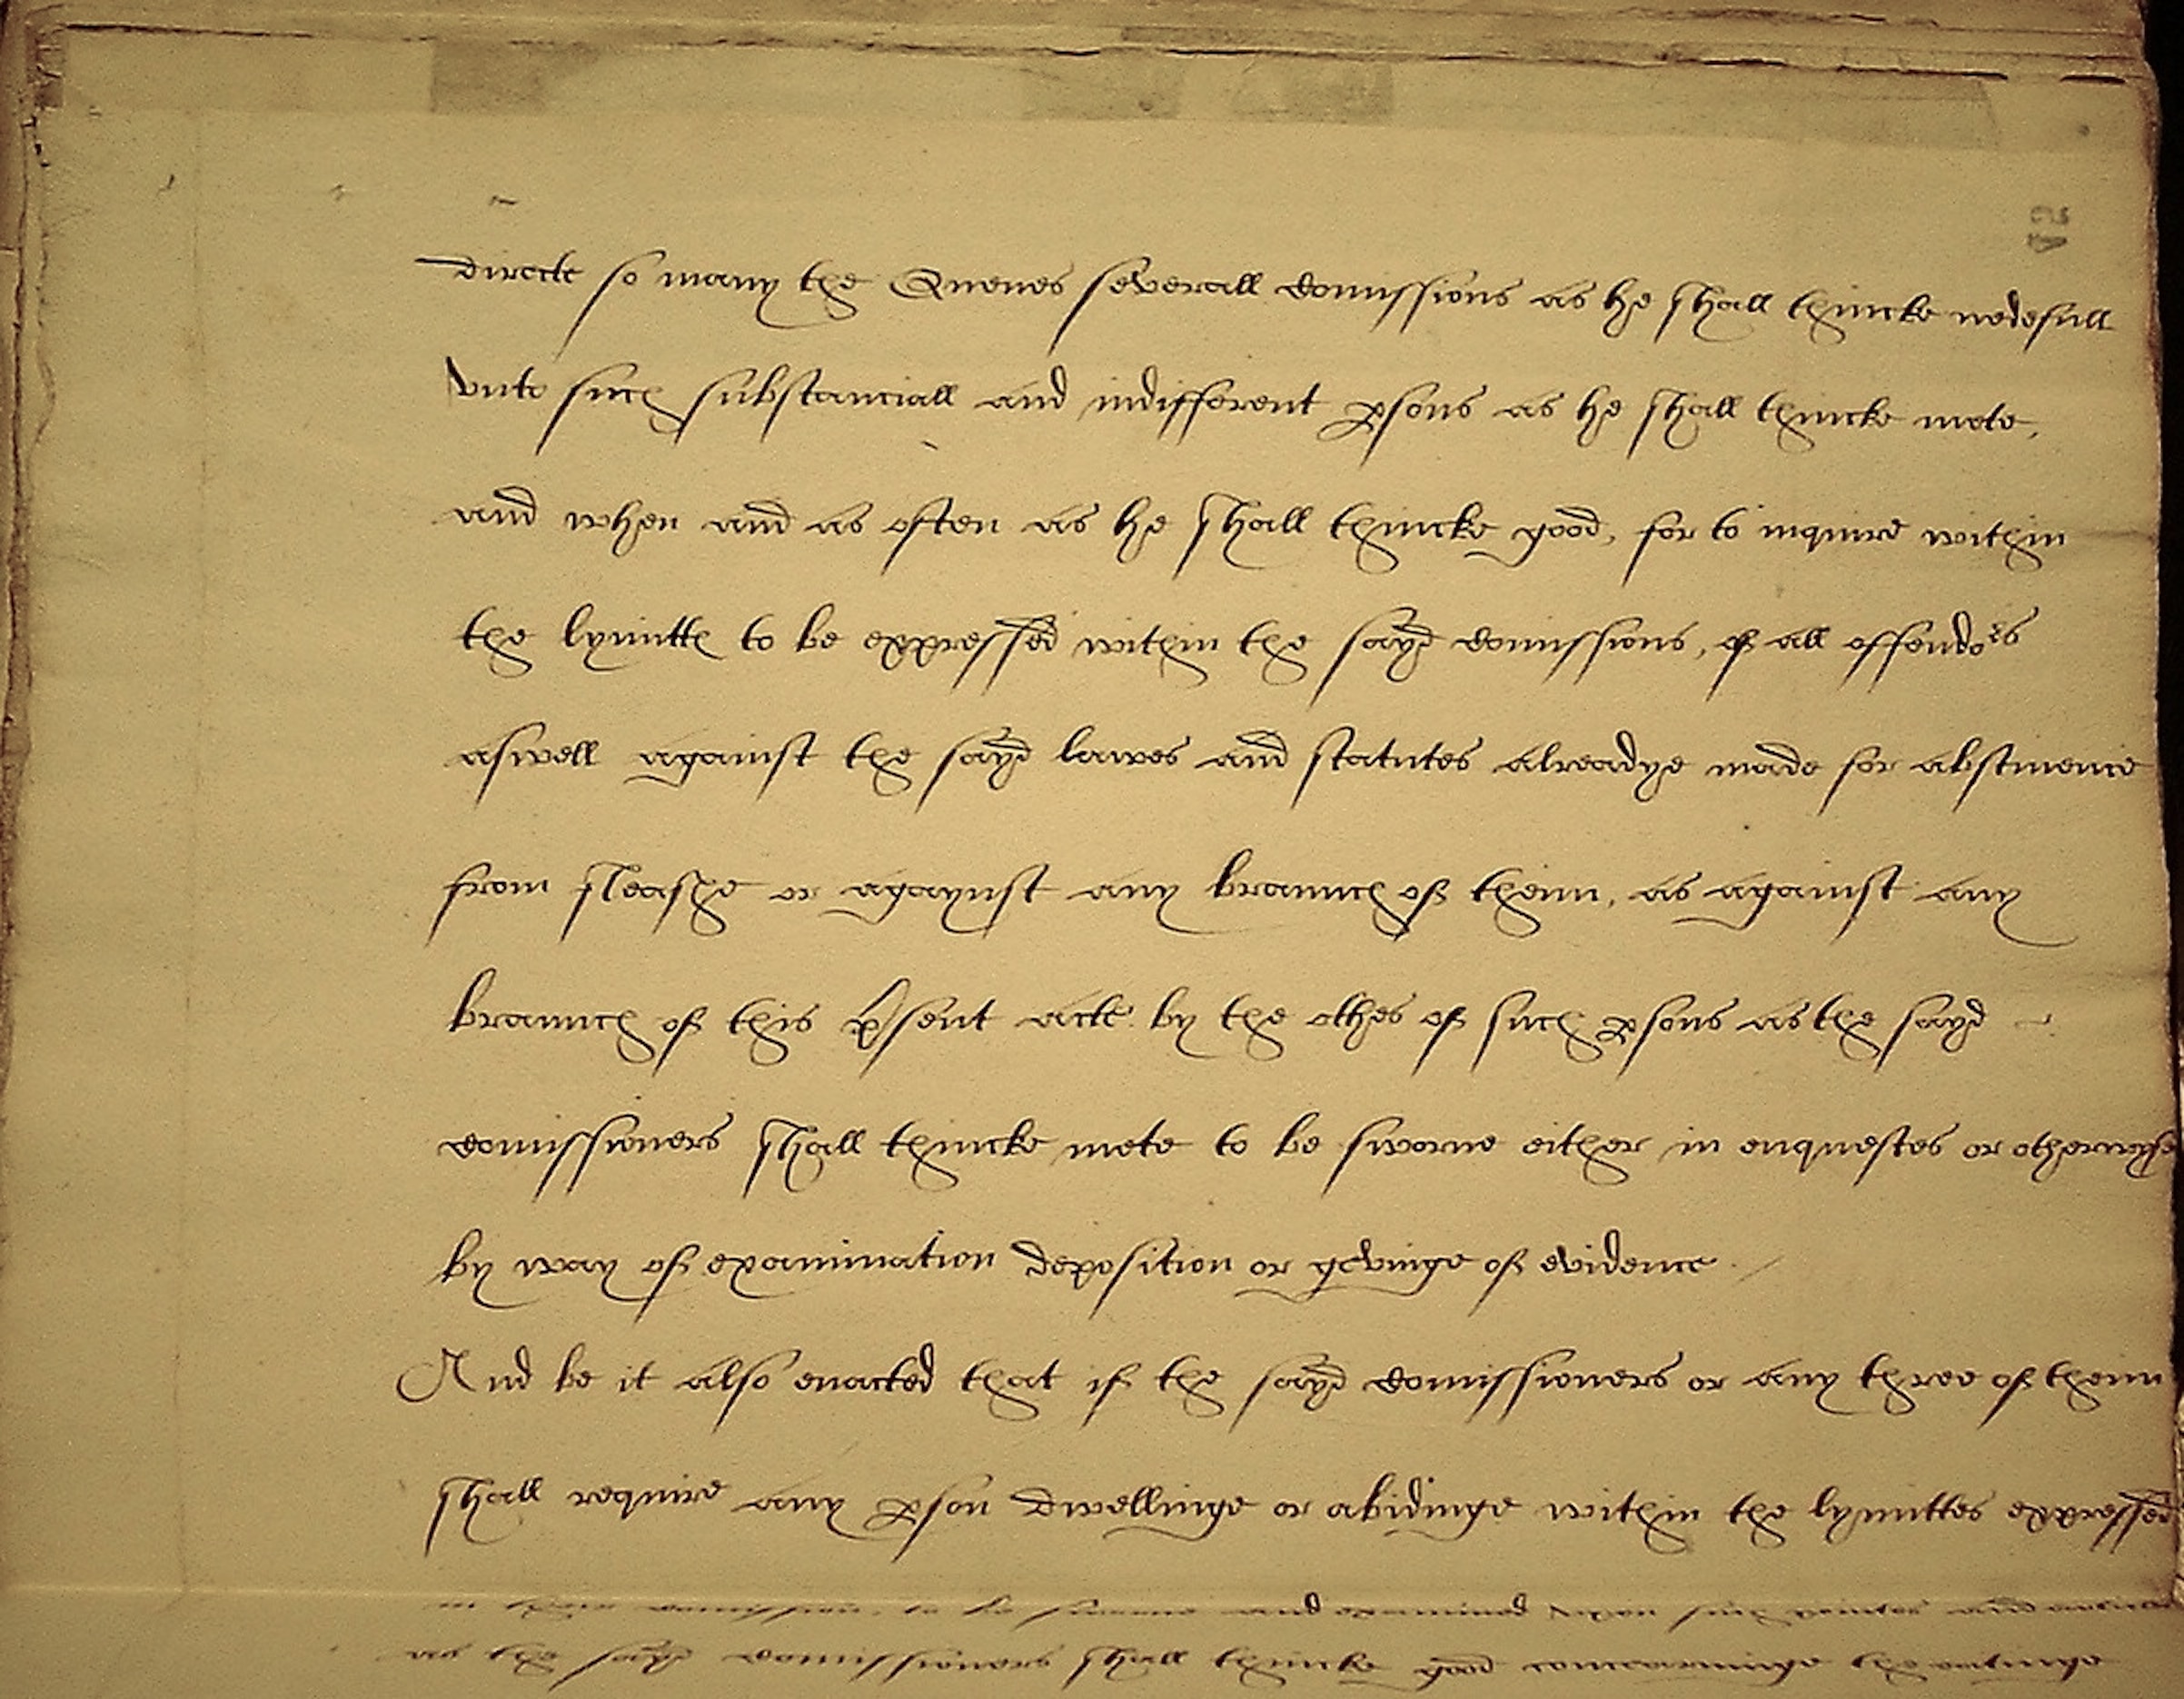 directe so many the Quenes severall Comissions as he shall thincke nedefull
vnto such substanciall and indifferent psons as he shall thincke mete,
and when and as often as he shall thincke good, for to inquire within
the lymitth to be expressed within the sayd Comissions, of all offendors
aswell against the sayd lawes and statutes alreadye made for abstinence
from fleashe or agaynst any braunch of theim, as against any
braunch of this psent acte by the othes of such psons as the sayd
Comissioners shall thincke mete to be sworne either in enquestes or otherwyse
by way of examination deposition or gevinge of evidence
And be it also enacted that if the sayd Comissioners or any three of theim
shall require any pson dwellinge or abidinge within the lymittes expressed
in Comission, to be sworne and examined vpon such pointes and
as the sayd Comissioners shall thincke good concearninge the eatinge